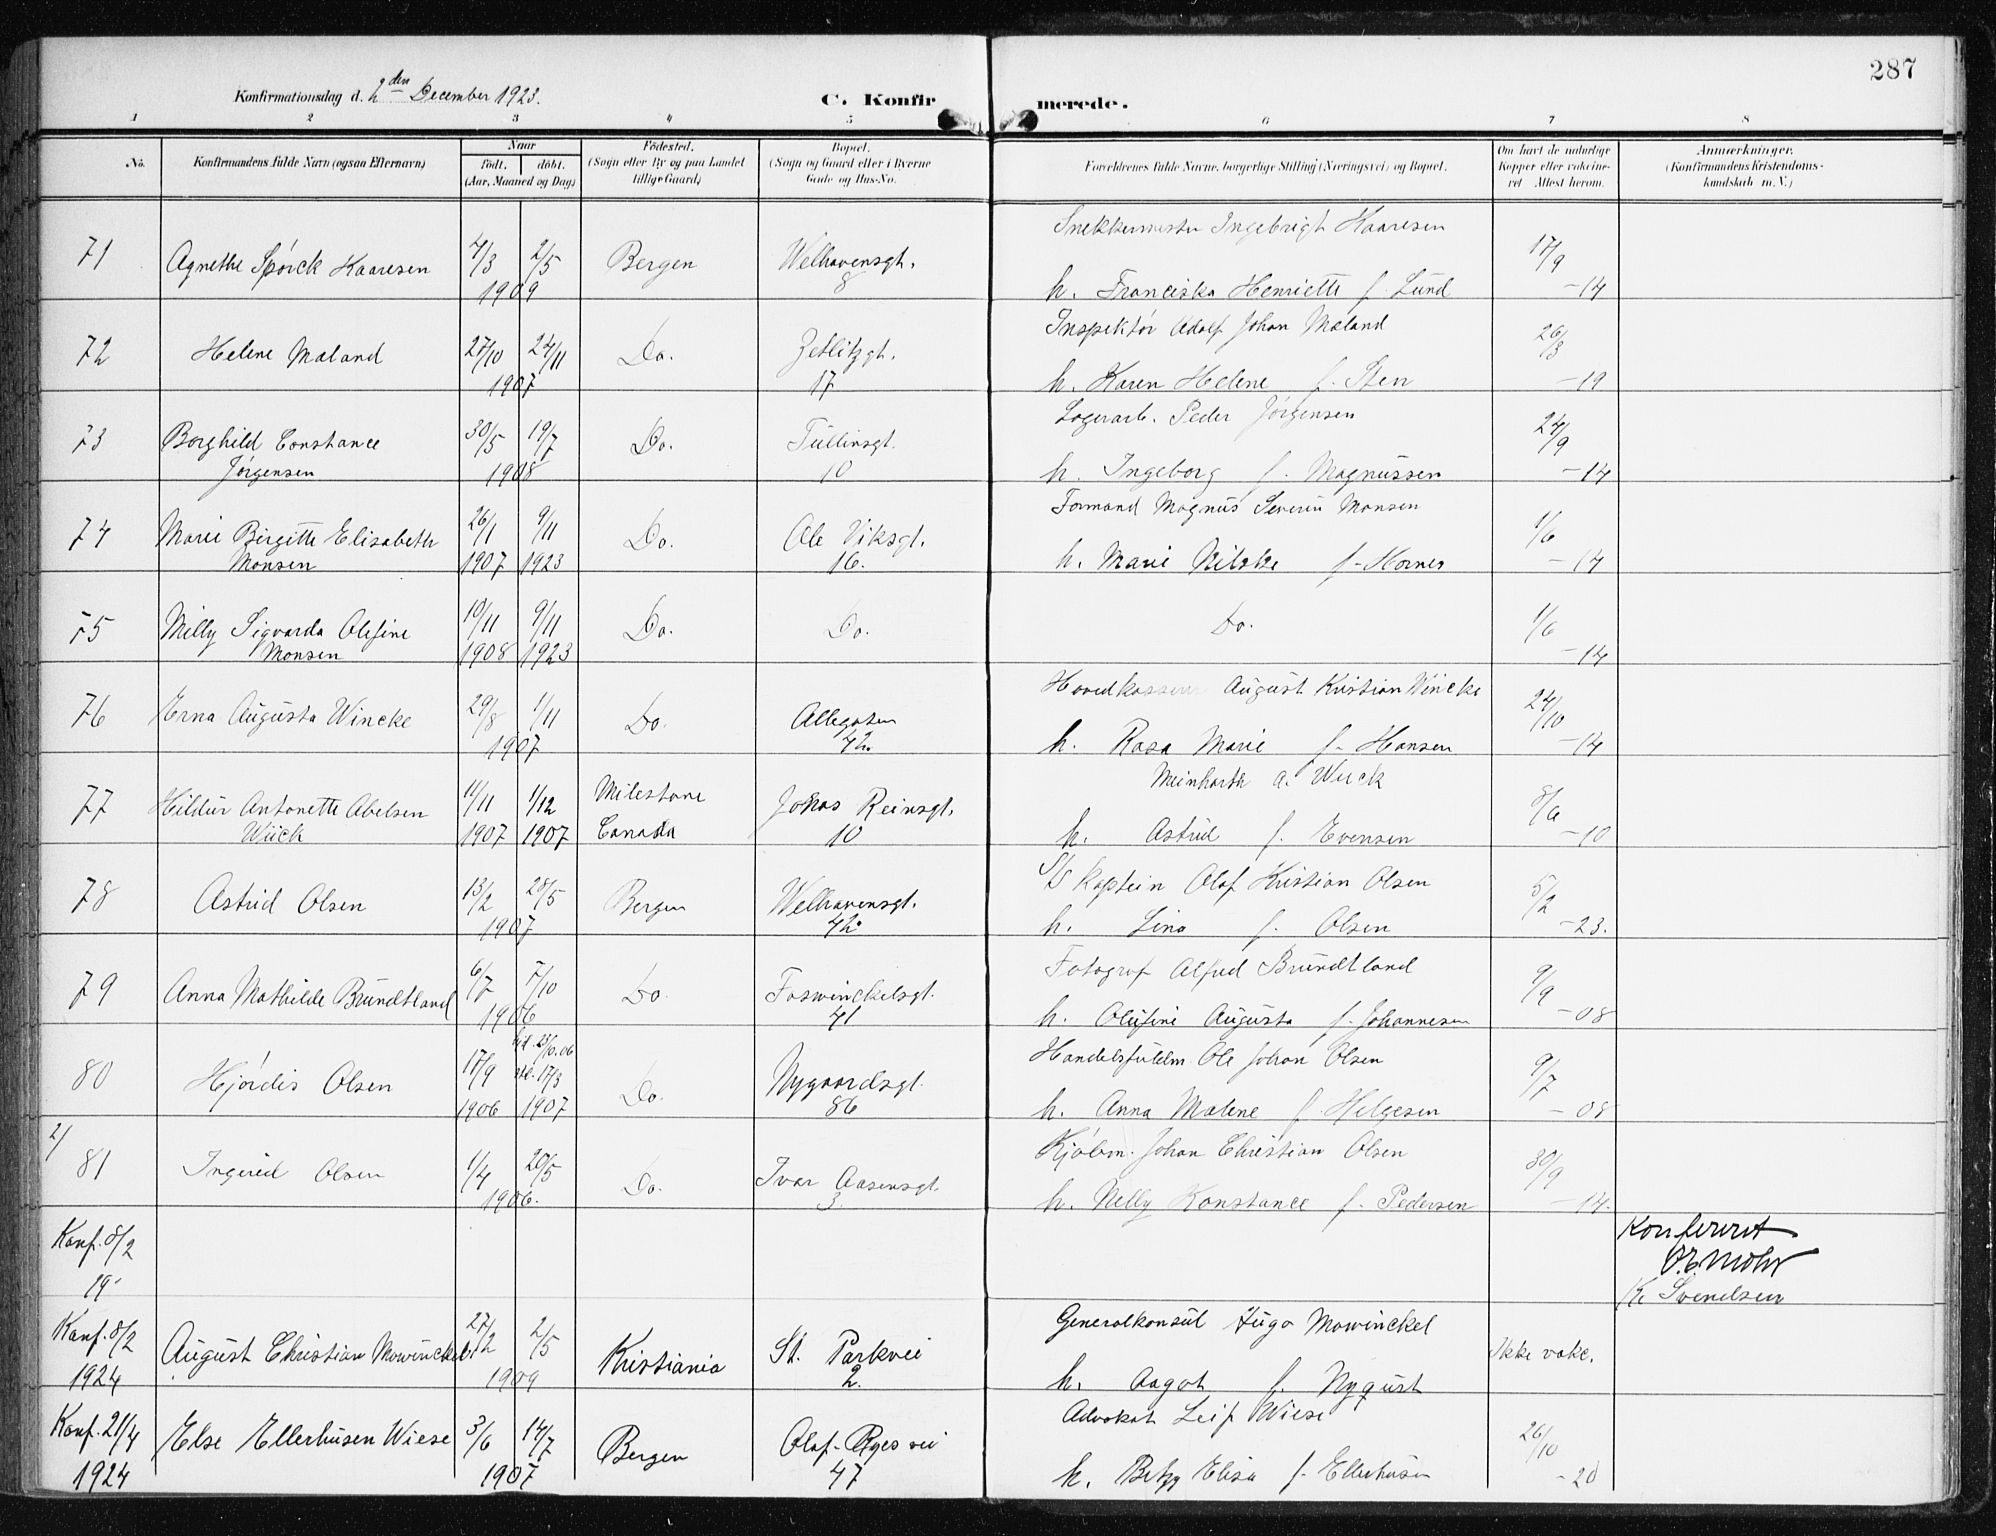 287
Konfirmationsdag d. 2den December 1923.
C. Konfirmerede.
1 2 3 4 5 6 7 8
No. Konfirmandens fulde Navn (ogsaa Efternavn) Naar født. døbt. (Aar, Maaned og Dag) Fødested. (Sogn eller By og paa Landet tillige Gaard) Bopæl. (Sogn og Gaard eller i Byerne Gade og Hus-No. Forældrenes fulde Navne, borgerlige Stilling (Næringsvei) og Bopæl. Om havt de naturlige Kopper eller vakcineret. Attest herom. Anmærkninger. (Konfirmandens Kristendomskundskab m. V.)
Snekkermester Ingebrigt Kaaresen
71 Agnethe Spørck Kaaresen 4/3 2/5 Bergen Welhavensgt. 17/9
1909 8 h. Franciska Henriette f. Lund -14
Inspektør Adolf Johan Mæland
72 Helene Mæland 27/10 24/11 Do. Zetlitzgt. 26/3
1907 17 h. Karen Helene f. Sten -19
Lagerarb. Peder Jørgensen
73 Borghild Constance 30/5 19/7 Do. Tullinsgt. 24/9
Jørgensen 1908 10 h. Ingeborg f. Magnussen -14
Formand Magnus Severin Monsen
74 Marie Birgitte Elisabeth 26/1 9/11 Do. Ole Viksgt. 1/6
Monsen 1907 1923 16. h. Marie f. Hornes -14
75 Milly Sigvarda Olefine 10/11 9/11 Do. Do. Do. 1/6
Monsen 1908 1923 -14
Hovedkasserer August Kristian Wincke
76 Erna Augusta Wincke 29/8 1/11 Do. Allegaten 24/10
1907 42. h. Rosa Marie f. Hansen -14
Meinharth A. Wiick
77 Hildur Antonette Abelsen 11/11 1/12 Milestone Jonas Reinsgt. 8/6
Wiick 1907 1907 Canada 10 h. Astrid f. Evensen -10
S/S Kaptein Olaf Kristian Olsen
78 Astrid Olsen 13/2 20/5 Bergen Welhavensgt. 5/2
1907 42 h. Lina f. Olsen -23.
Fotograf Alfred Brundtland
79 Anna Mathilde Brundtland 6/7 7/10 Do. Foswinckelsgt. 9/9
1906 41 h. Olufine Augusta f. Johannesen -08
Handelsfuldm. Ole Johan Olsen
80 Hjørdis Olsen 17/9 17/3 Do. Nygaardsgt. 9/7
1906 1907 86 h. Anna Malene f. Helgesen -08
2/
Kjøbm. Johan Christian Olsen
81 Ingrid Olsen 1/4 20/5 Do. Ivar Aasensgt. 30/9
1906. 3. h. Nelly Konstance f. Pedersen -14.
Konf. 8/2 Konfereret
19 O.E. Mohr
K. Svendsen
Generalkonsul Hugo Mowinckel
Konf. 8/2 August Christian Mowinckel 27/2 2/5 Kristiania St. Parkvei Ikke vakc.
1924 1909 2. h. Aagot f. Nyqvist
Advokat Leif Wiese
Konf. 21/4 Else Ellerhusen Wiese 3/6 14/7 Bergen Olaf Ryes vei 26/10
1924 1907 47 h. Betzy Elisa f. Ellerhusen -20